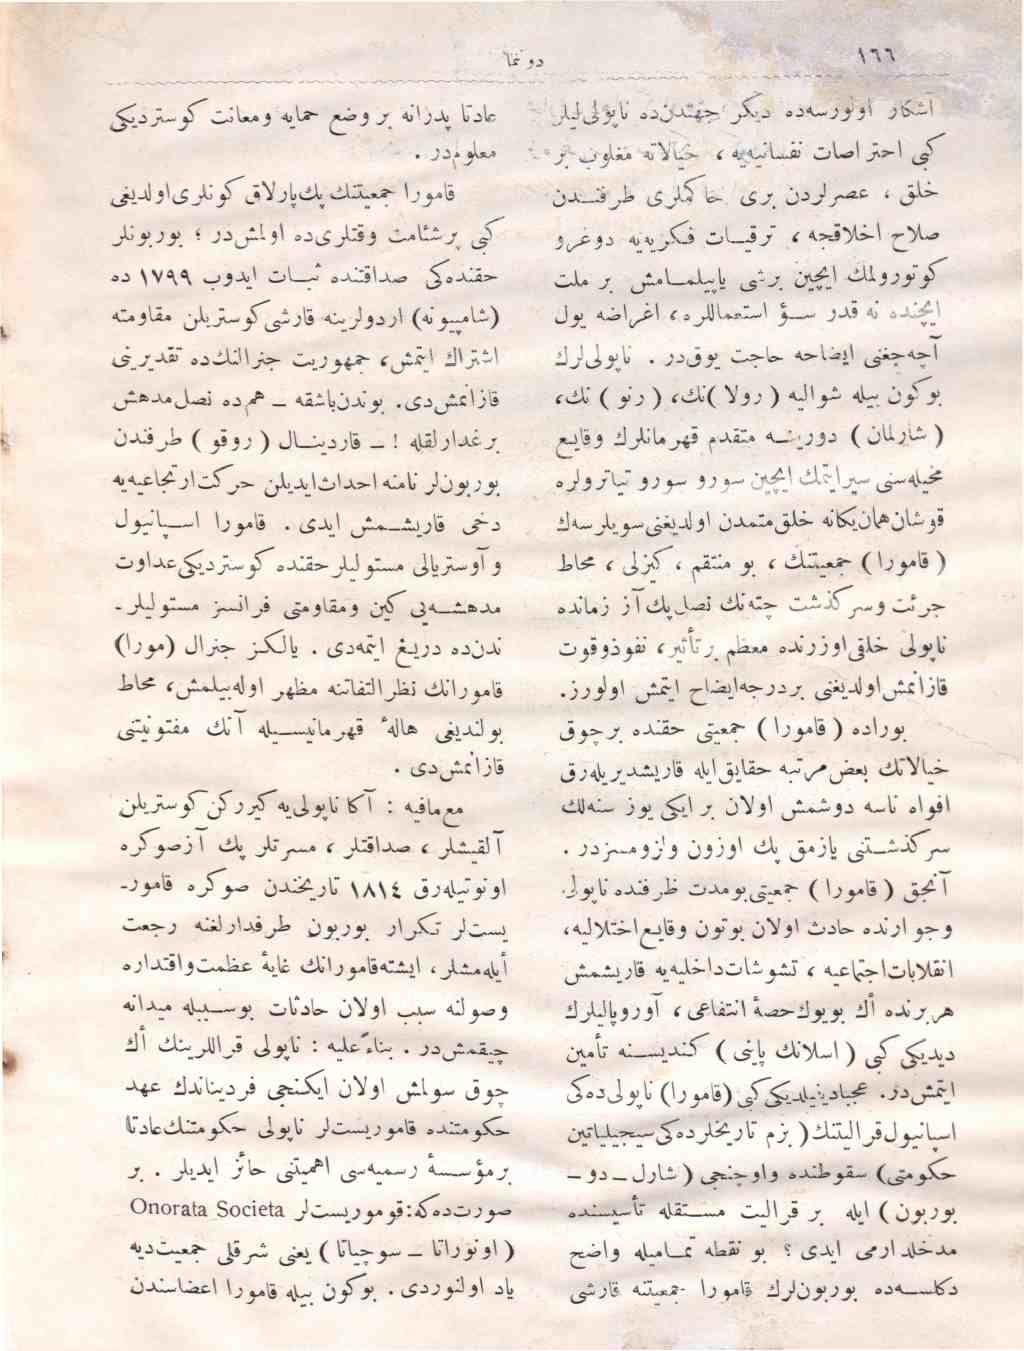 ١٦٦
دوننما
اشكار اولورسه‌ده ديكر جهتدن‌ده ناپولی‌ليلر
كبی احتراصات نفسانيه‌يه ، خيالاته مغلوب بر
خلق ، عصرلردن بری حاكملری طرفنــدن
صلاح اخلاقجه ، ترقيــات فكريه‌يه دوغرو
كوتورولمك ايچين برشی ياپيلمــامش بر ملت
ايچنده نه قدر ســؤ استعماللره ، اغراضه يول
آچه‌جغنی ايضاحه حاجت يوق‌در . ناپولی‌لرك
بوكون بيله شواليه ( رولا )نك، ( رنو ) نك،
( شارلمان ) دورينــه متقدم قهرمانلرك وقايـع
مخيله‌سنی سيرايتمك ايچين سورو سورو تياترولره
قوشان‌همان‌يكانه خلق‌متمدن اولديغنی‌سويلرسه‌ك
( قامورا ) جمعيتنك ، بو منتقم ، كيزلی ، محاط
جرئت وسركذشت چته‌نك نصل‌پك آز زمانده
ناپولی خلقی‌اوزرنده معظم برتأثير، نفوذوقوت
قازانمش‌اولديغنی بردرجه‌ايضاح ايتمش اولورز.
بوراده ( قامورا ) جمعيتی حقنده برچوق
خيالاتك بعض‌مرتبه حقايق‌ايله قاريشديريله‌رق
افواه ناسه دوشمش اولان بر ايكی يوز سنه‌لك
سركذشــتنی يازمق پك اوزون ولزومسزدر .
آنجق ( قامورا ) جمعيتی‌بومدت ظرفنده ناپولی
وجوارنده حادث اولان بوتون وقايـع‌اختلاليه،
انقلابات‌اجتماعيه ، تشوشات‌داخليه‌يه قاريشمش
هربرنده أك بويوك‌حصهٔ انتفاعی ، آوروپاليلرك
ديديكی كبی ( اسلانك پاينی ) كنديســنه تأمين
ايتمش‌در. عجبادينيلديكی‌كبی (قامورا) ناپولی‌ده‌كی
اسپانيول‌قراليتنك( بزم تاريخلرده‌كی‌سيجيلياتين
حكومتی) سقوطنده واوچنجی ( شارل ـ دو ـ
بوربون ) ايله بر قراليت مســتقله تأسيسنده
مدخلدارمی ايدی ؟ بو نقطه تمــاميله واضح
دكلســه‌ده بوربون‌لرك قامورا جمعيتنه قارشی
عادتا پدرانه بر وضع حمايه ومعانت كوستردیكی
معلوم‌در .
قامورا جمعيتنك پك‌پارلاق كونلری‌اولديغی
كبی پرشئامت وقتلری‌ده اولمش‌در ؛ بوربونلر
حقنده‌كی صداقتنده ثبــات ايدوب ١٧٩٩ ده
(شامپيونه) اردولرينه قارشی‌كوستريلن مقاومته
اشتراك ايتمش، جمهوريت جنرالنك‌ده تقديرينی
قازانمش‌دی. بوندن‌باشقه ـ هم‌ده نصل‌مدهش
برغدارلقله ! ـ قاردينــال ( روقو ) طرفندن
بوربون‌لر نامنه احداث‌ايديلن حركت‌ارتجاعيه‌يه
دخی قاريشــمش ايدی . قامورا اســپانيول
وآوستريالی مستوليلر حقنده كوسترديكی‌عداوت
مدهشــه‌يی كين ومقاومتی فرانسز مستوليلر-
ندن‌ده دريغ ايتمه‌دی . يالكـز جنرال (مورا)
قامورانك نظرالتفاتنه مظهر اوله‌بيلمش، محاط
بولنديغی هالهٔ قهرمانيســيله آنك مفتونيتنی
قازانمش‌دی .
مع‌مافيه : آكا ناپولی‌يه كيرركن كوستريلن
آلقيشلر ، صداقتلر ، مسرتلر پك آزصوكره
اونوتيله‌رق ١٨١٤ تاريخندن صوكره قامور-
يست‌لر تكرار بوربون طرفدارلغنه رجعت
أيله‌مشلر، ايشته‌قامورانك غايهٔ عظمت‌واقتداره
وصولنه سبب اولان حادثات بوســيله ميدانه
چيقمش‌در . بناءً‌عليه : ناپولی قراللرينك أك
چوق سولمش اولان ايكنجی فرديناندك عهد
حكومتنده قاموريست‌لر ناپولی حكومتنك‌عادتا
برمؤسســهٔ رسميه‌سی اهميتنی حائز ايديلر . بر
صورت‌ده‌كه:قوموريست‌لر Onorata Societa
( اونوراتا ـ سوچياتا ) يعنی شرفلی جمعيت‌ديه
ياد اولنوردی . بوكون بيله قامورا اعضاسندن